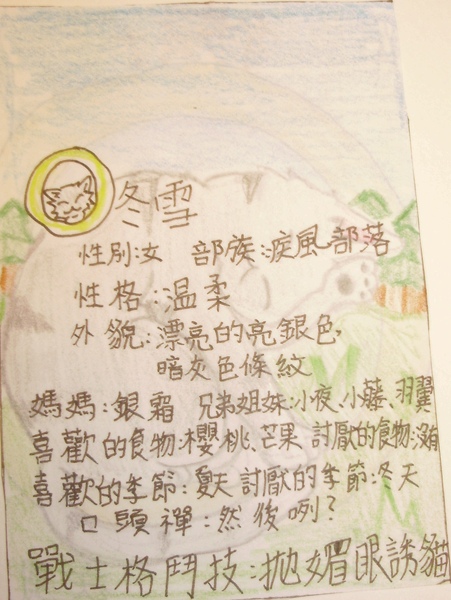 冬雪
性別:女 部族:疾風部落
性格:溫柔
外貌:漂亮的亮銀色,
暗灰色條紋
媽媽:銀霜 兄弟姐妹:小夜、小藤、羽翼
喜歡的食物:櫻桃、芒果 討厭的食物:
喜歡的季節:夏天 討厭的季節:冬天
口頭禪:然後咧?
戰士格鬥技:拋媚眼誘貓